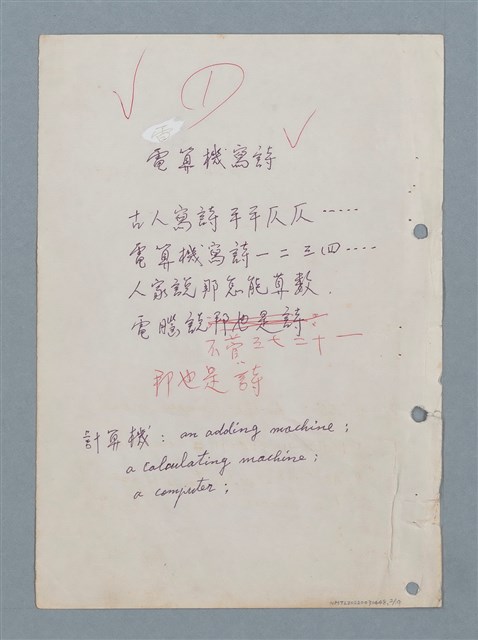 ①
電算機寫詩
古人寫詩平平仄仄……
電算機寫詩一二三四……
人家說那怎能算數.
電腦說那也是詩
不管三七二十一
那也是詩
計算機: an adding machine;
a calculating machine;
a computer;